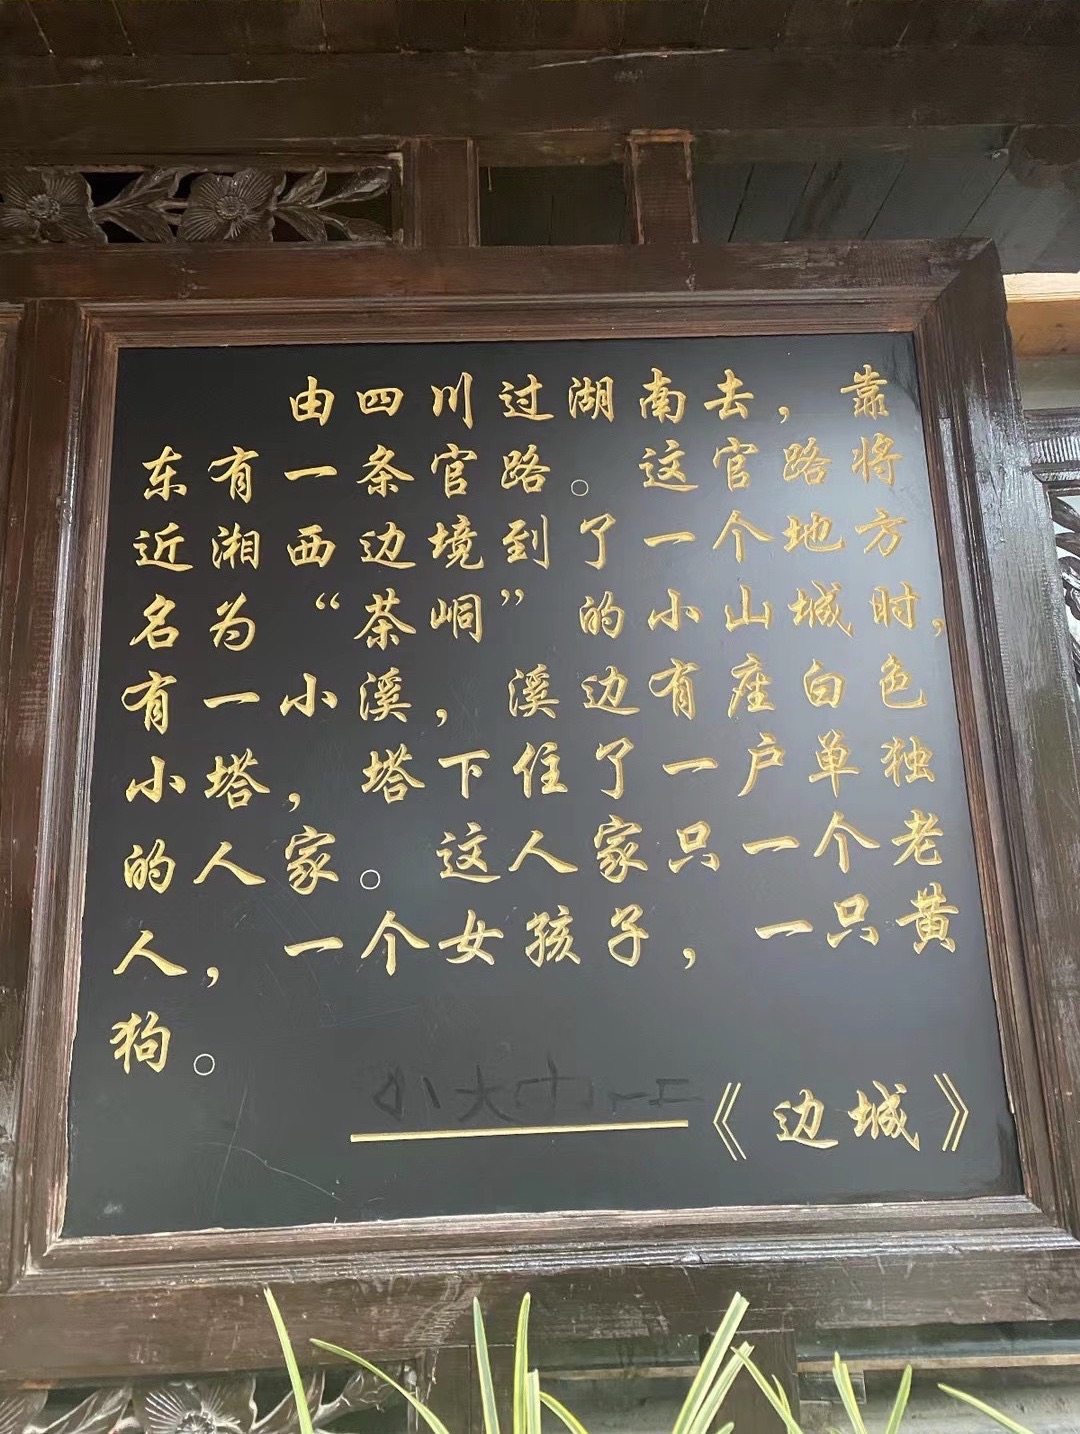 由四川过湖南去，靠
东有一条官路。这官路将
近湘西边境到了一个地方
名为“茶峒”的小山城时，
有一小溪，溪边有座白色
小塔，塔下住了一户单独
的人家。这人家只一个老
人，一个女孩子，一只黄
狗。
——《边城》